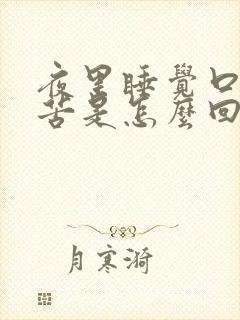 夜里睡覺口
苦是怎麼回
月寒漪